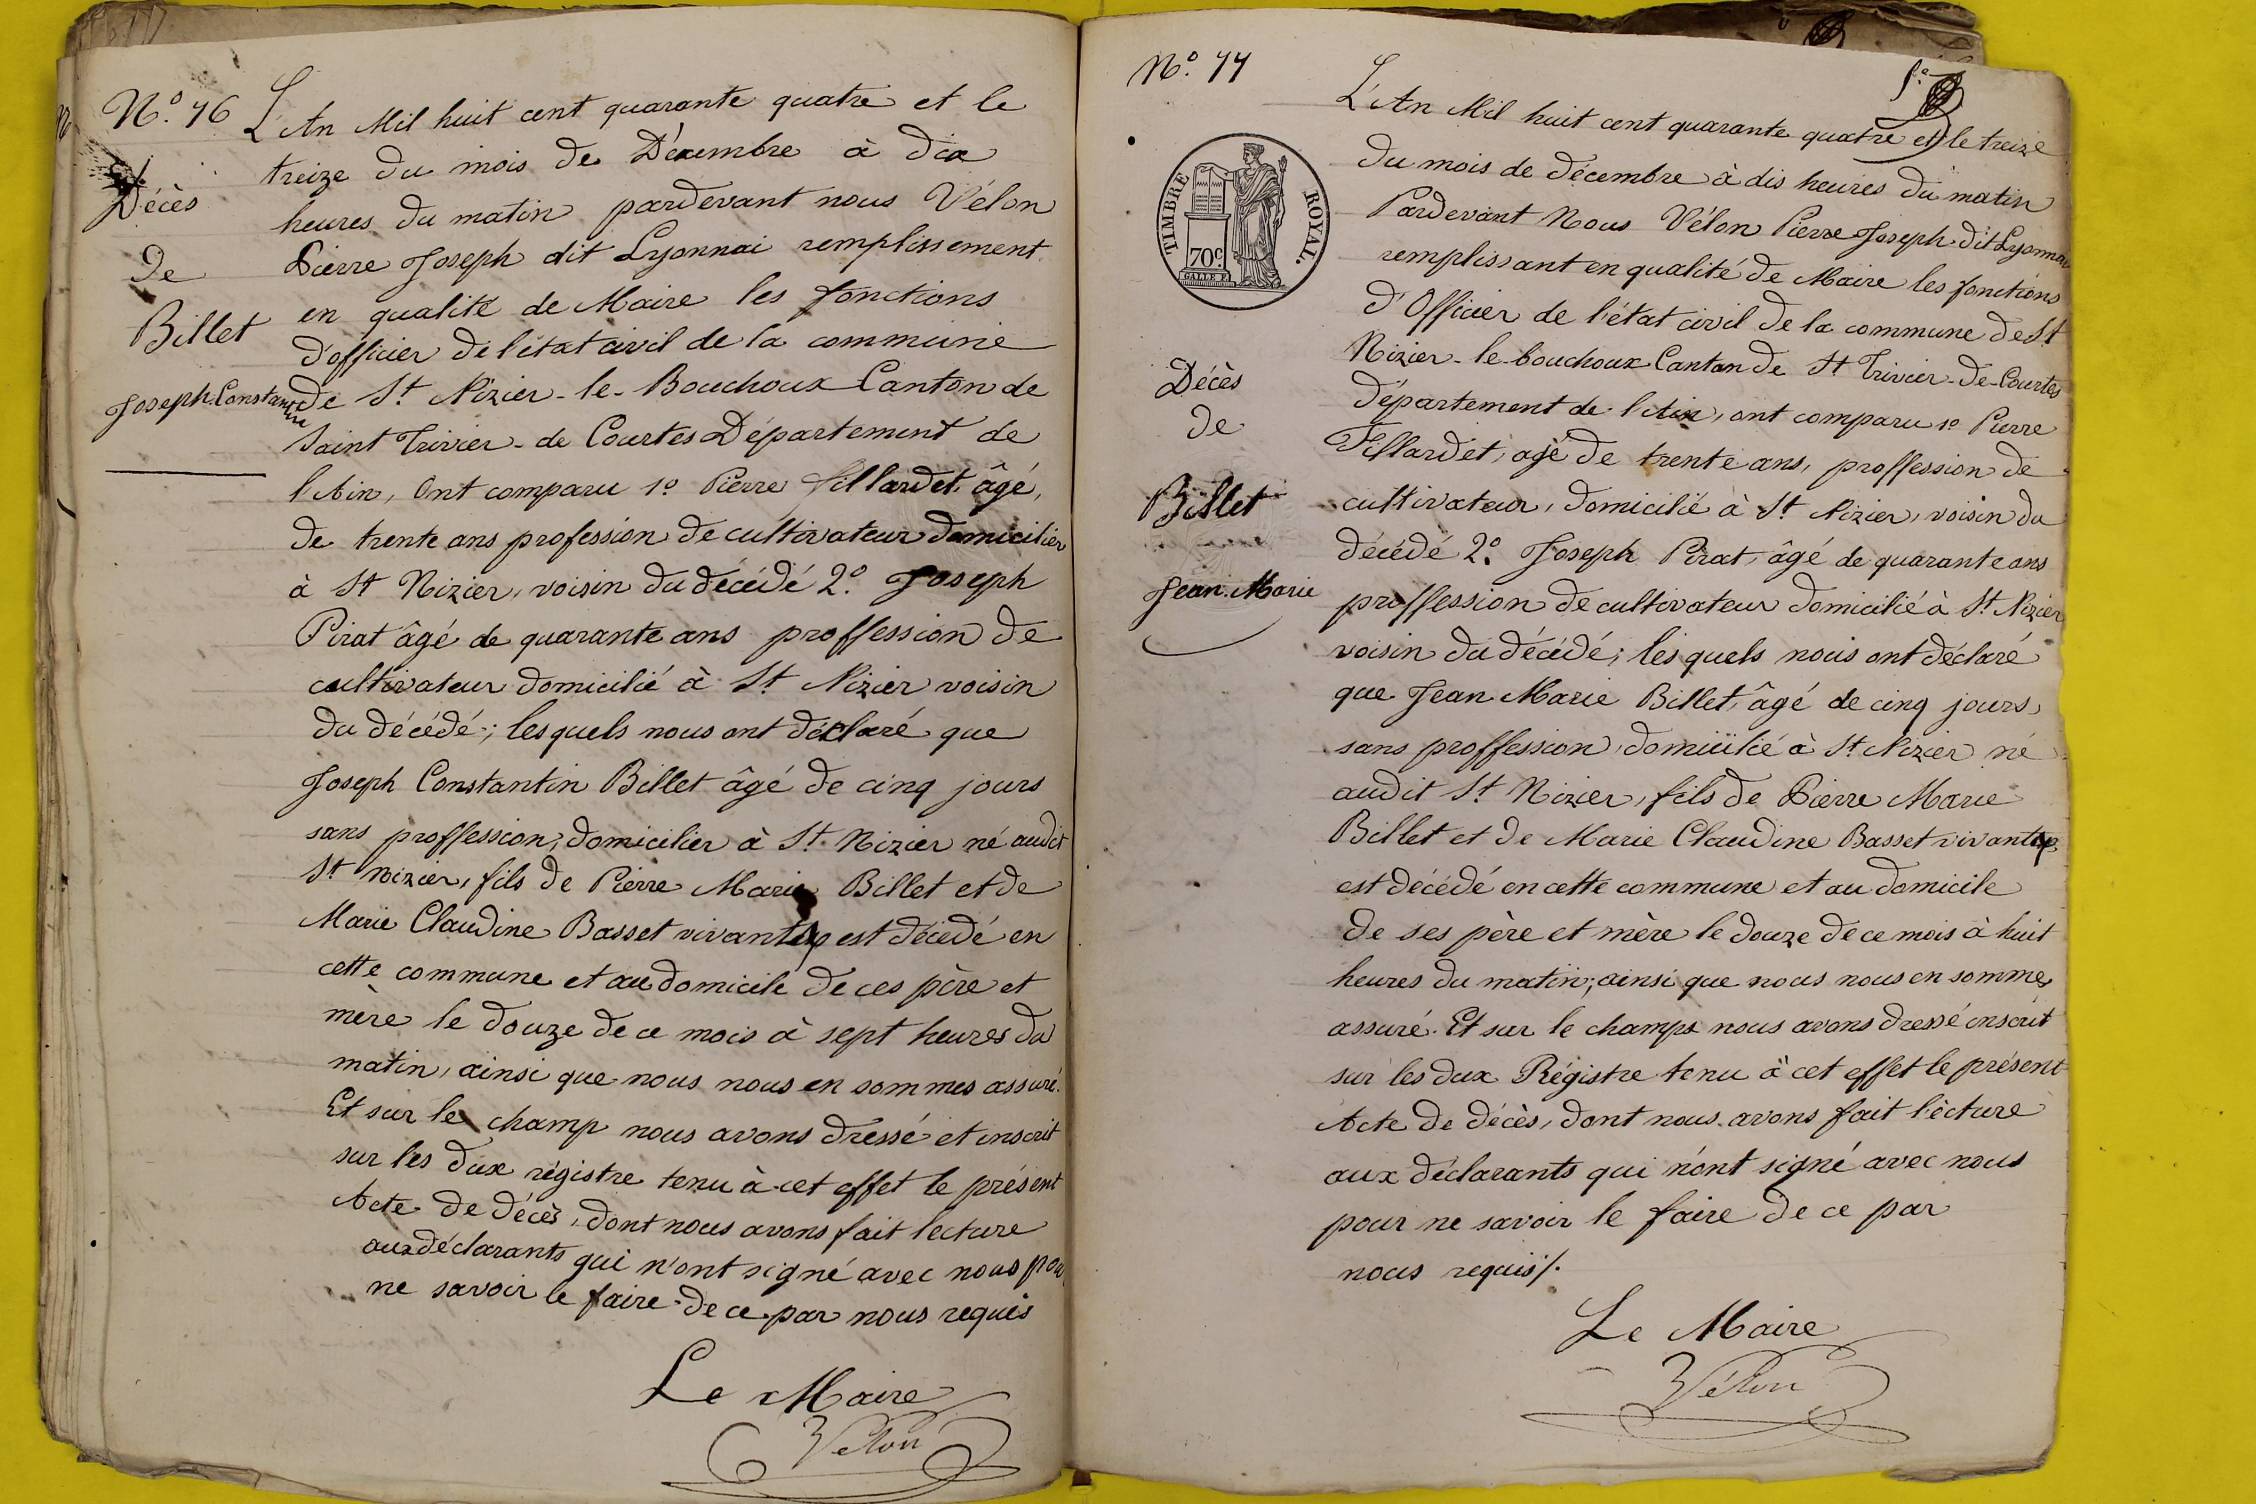 N.° 76
Décès
de
Billet
Joseph-Constantin
L'An Mil huit cent quarante quatre et le
treize du mois de Décembre à dix
heures du matin pardevant nous Vélon
Pierre Joseph dit Lyonnai remplissement
en qualité de Maire les fonctions
d'officier de l'état civil de la commune
de St. Nizier-le-Bouchoux Canton de
Saint Trivier-de Courtes Département de
l'Ain, Ont comparu 1° Pierre Fillardet, âgé,
de trente ans profession de cultivateur domicilier
à St Nizier, voisin du décédé 2° Joseph
Pirat âgé de quarante ans proffession de
cultivateur domicilié à St. Nizier voisin
du décédé; lesquels nous ont déclaré que
Joseph Constantin Billet âgé de cinq jours
sans proffession, domicilier à St. Nizier né audit
St Nizier, fils de Pierre Marie Billet et de
Marie Claudine Basset vivant est décédé en
cette commune et au domicile de ces père et
mère le douze de ce mois à sept heures du
matin, ainsi que nous nous en sommes assuré.
Et sur le champ nous avons dressé et inscrit
sur les dux régistre tenu à cet effet le présent
Acte de décès, dont nous avons fait lecture
aux déclarants qui n'ont signé avec nous pour
ne savoir le faire de ce par nous requis
Le Maire
Vélon
N.° 77
TIMBRE ROYAL.
70c.
GALLE F.
Décès
de
Billet
Jean-Marie
L'An Mil huit cent quarante quatre et le treize
du mois de décembre à dis heures du matin
Pardevant Nous Vélon Pierre Joseph dit Lyonnai
remplissant en qualité de Maire les fonctions
d'Officier de l'état civil de la commune de St
Nizier-le-bouchoux Canton de St Trivier-de-Courtes
département de l'Ain, ont comparu 1° Pierre
Fillardet, âgé de trente ans, proffession de
cultivateur, domicilié à St. Nizier, voisin du
décédé 2° Joseph Pirat, âgé de quarante ans
proffession de cultivateur domicilié à St. Nizier
voisin du décédé; les quels nous ont déclaré
que Jean Marie Billet, âgé de cinq jours,
sans proffession, domicilié à St. Nizier né
audit St. Nizier, fils de Pierre Marie
Billet et de Marie Claudine Basset vivant
est décédé en cette commune et au domicile
de ses père et mère le douze de ce mois à huit
heures du matin; ainsi que nous nous en sommes
assuré. Et sur le champs nous avons dressé inscrit
sur les dux Régistre tenu à cet effet le présent
Acte de décès, dont nous avons fait lècture
aux déclarants qui n'ont signé avec nous
pour ne savoir le faire de ce par
nous requis/.
Le Maire
Vélon